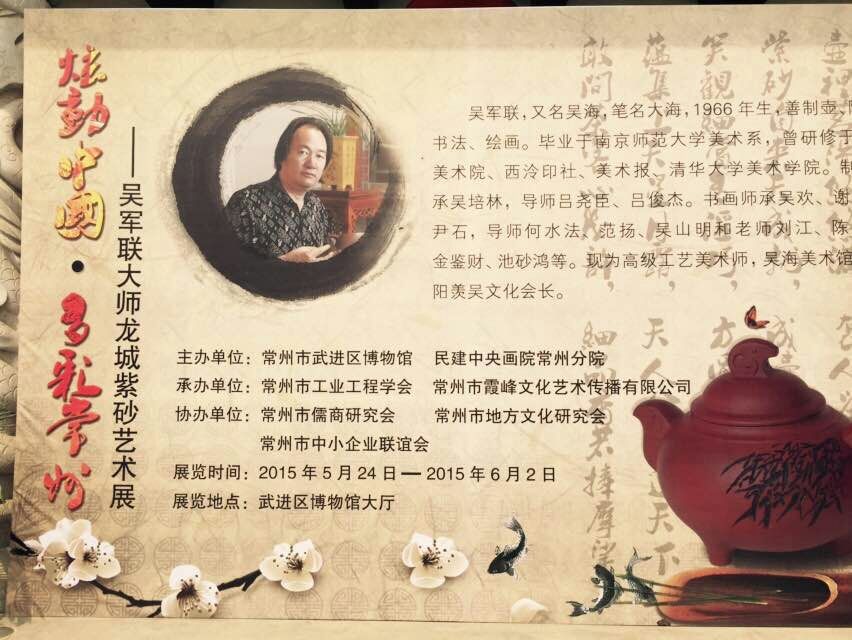 炫動中國·多彩常州
——吴军联大师龙城紫砂艺术展
吴军联,又名吴海,笔名大海,1966年生,善制壶、
书法、绘画。毕业于南京师范大学美术系,曾研修于
美术院、西泠印社、美术报、清华大学美术学院。制
承吴培林,导师吕尧臣、吕俊杰。书画师承吴欢、谢
尹石,导师何水法、范扬、吴山明和老师刘江、陈
金鉴财、池砂鸿等。现为高级工艺美术师,吴海美术馆
阳羡吴文化会长。
主办单位:常州市武进区博物馆 民建中央画院常州分院
承办单位:常州市工业工程学会 常州市霞峰文化艺术传播有限公司
协办单位:常州市儒商研究会 常州市地方文化研究会
常州市中小企业联谊会
展览时间:2015年5月24日—2015年6月2日
展览地点:武进区博物馆大厅